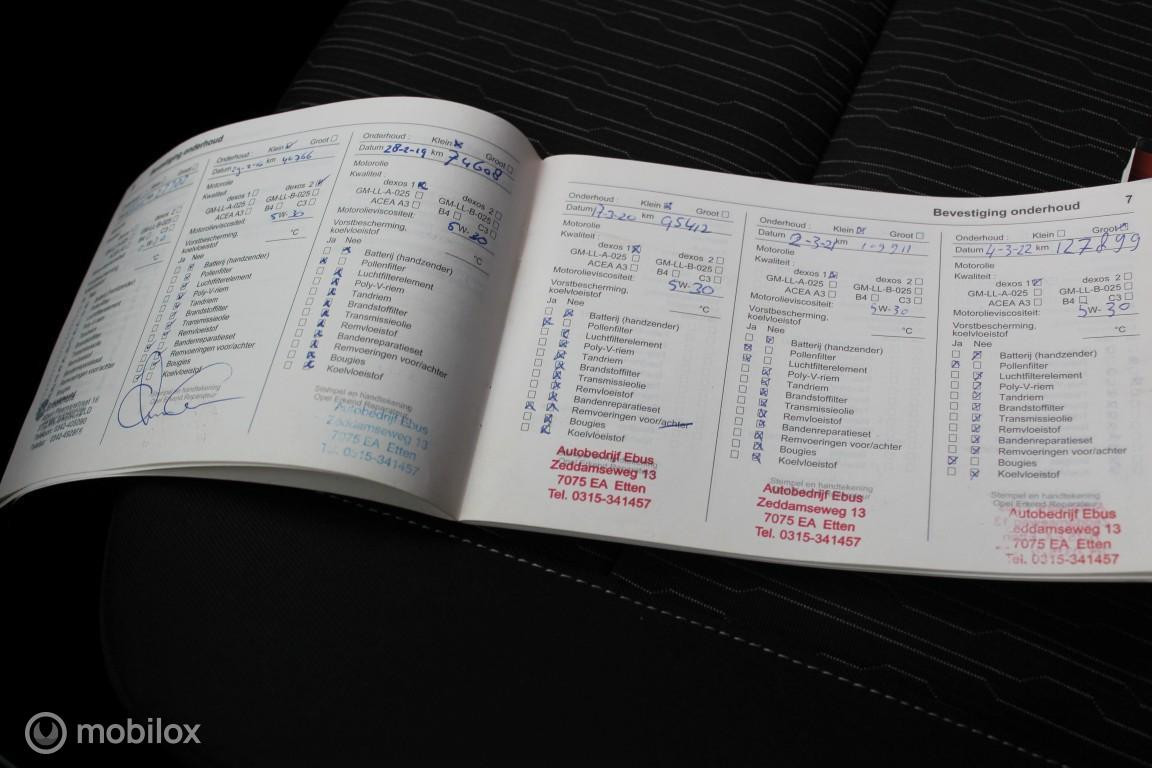 Bevestiging onderhoud
Onderhoud : Klein Groot
Datum km 44766
Motorolie
Kwaliteit : dexos 1 dexos 2
GM-LL-A-025 GM-LL-B-025
ACEA A3 B4 C3
Motorolieviscositeit: 5W-30
Vorstbescherming, koelvloeistof °C
Ja Nee
Batterij (handzender)
Pollenfilter
Luchtfilterelement
Poly-V-riem
Tandriem
Brandstoffilter
Transmissieolie
Remvloeistof
Bandenreparatieset
Remvoeringen voor/achter
Bougies
Koelvloeistof
Stempel en handtekening
Opel Erkend Reparateur
Onderhoud : Klein Groot
Datum 28-2-19 km 74608
Motorolie
Kwaliteit : dexos 1 dexos 2
GM-LL-A-025 GM-LL-B-025
ACEA A3 B4 C3
Motorolieviscositeit: 5W-30
Vorstbescherming, koelvloeistof °C
Ja Nee
Batterij (handzender)
Pollenfilter
Luchtfilterelement
Poly-V-riem
Tandriem
Brandstoffilter
Transmissieolie
Remvloeistof
Bandenreparatieset
Remvoeringen voor/achter
Bougies
Koelvloeistof
Stempel en handtekening
Opel Erkend Reparateur
Autobedrijf Ebus
Zeddamseweg 13
7075 EA Etten
Tel. 0315-341457
Bevestiging onderhoud 7
Onderhoud : Klein Groot
Datum 17-3-20 km 95412
Motorolie
Kwaliteit : dexos 1 dexos 2
GM-LL-A-025 GM-LL-B-025
ACEA A3 B4 C3
Motorolieviscositeit: 5W-30
Vorstbescherming,
koelvloeistof °C
Ja Nee
Batterij (handzender)
Pollenfilter
Luchtfilterelement
Poly-V-riem
Tandriem
Brandstoffilter
Transmissieolie
Remvloeistof
Bandenreparatieset
Remvoeringen voor/achter
Bougies
Koelvloeistof
Autobedrijf Ebus
Zeddamseweg 13
7075 EA Etten
Tel. 0315-341457
Onderhoud : Klein Groot
Datum 2-3-21 km
Motorolie
Kwaliteit : dexos 1 dexos 2
GM-LL-A-025 GM-LL-B-025
ACEA A3 B4 C3
Motorolieviscositeit: 5W-30
Vorstbescherming,
koelvloeistof °C
Ja Nee
Batterij (handzender)
Pollenfilter
Luchtfilterelement
Poly-V-riem
Tandriem
Brandstoffilter
Transmissieolie
Remvloeistof
Bandenreparatieset
Remvoeringen voor/achter
Bougies
Koelvloeistof
Stempel en handtekening
Autobedrijf Ebus
Zeddamseweg 13
7075 EA Etten
Tel. 0315-341457
Onderhoud : Klein Groot
Datum 4-3-22 km 127899
Motorolie
Kwaliteit : dexos 1 dexos 2
GM-LL-A-025 GM-LL-B-025
ACEA A3 B4 C3
Motorolieviscositeit: 5W-30
Vorstbescherming,
koelvloeistof °C
Ja Nee
Batterij (handzender)
Pollenfilter
Luchtfilterelement
Poly-V-riem
Tandriem
Brandstoffilter
Transmissieolie
Remvloeistof
Bandenreparatieset
Remvoeringen voor/achter
Bougies
Koelvloeistof
Stempel en handtekening
Opel Erkend Reparateur
Autobedrijf Ebus
Zeddamseweg 13
7075 EA Etten
Tel. 0315-341457
mobilox